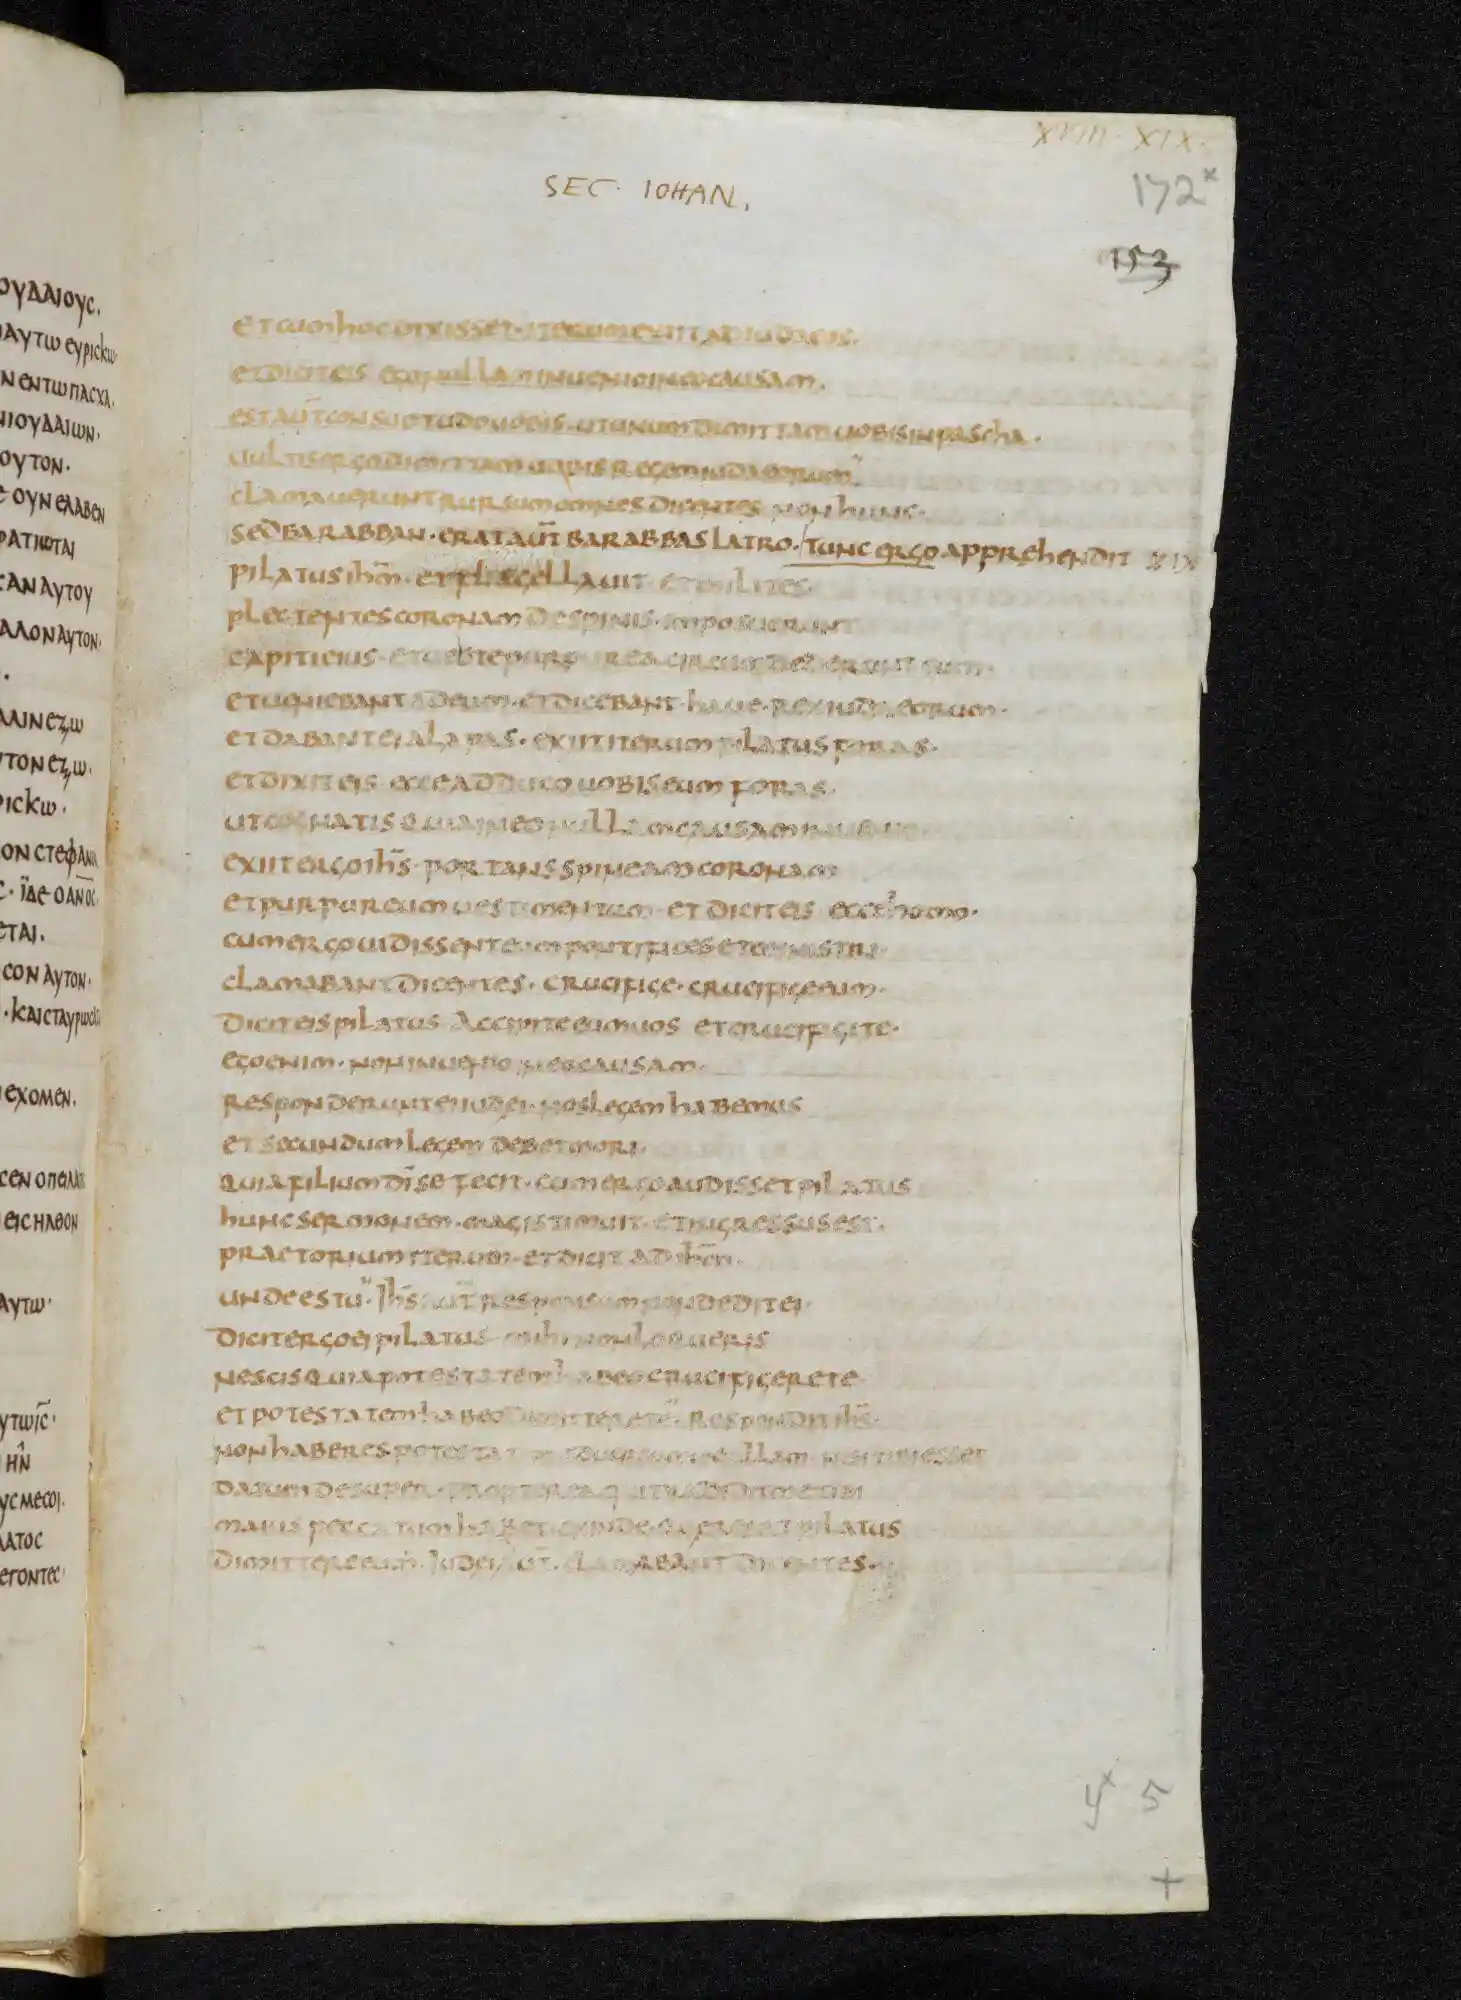 XVIII · XIX ·
SEC · IOHAN.
172*
153
ουδαιουϲ.
αυτω ευριϲκω·
ν εντωπαϲχα.
ιουδαιων·
ουτον·
ουν ελαβεν
ρατιωται
ϲαν αυτου
αλον αυτον·
αλιν εξω
τον εξω·
ριϲκω·
ον ϲτεφανον
· ϊδε ο ανοϲ
εται.
ϲον αυτον·
· και ϲταυρωϲ
εχομεν.
ϲεν ο πειλατ
ειϲηλθον
αυτω·
υτω ιϲ·
υϲ μεϲοι·
λατοϲ
εγοντεϲ·
et cum hoc dixisset · iterum exiit ad iudaeis ·
et dicit eis ego nullam inuenio in eo causam.
est aut̄ consuetudo uobis · ut unum dimittam uobis in pascha ·
uultis ergo dimittam uobis regem iudaeorum
clamauerunt rursum omnes dicentes non hunc ·
sed barabban · erat aut̄ barabbas latro · tunc ergo apprehendit XIX
pilatus ihm̄ · et flagellauit et milites ·
plectentes coronam de spinis · imposuerunt
capiti eius · et ueste purpurea circumdederunt eum ·
et ueniebant ad eum · et dicebant · haue · rex iudaeorum ·
et dabant ei alapas · exiit iterum pilatus foras ·
et dixit eis ecce adduco uobis eum foras ·
ut cognatis quia in eo nullam causam inuenio ·
exiit ergo ihs̄ · portans spineam coronam
et purpureum uestimentum · et dicit eis ecce homo ·
cum ergo uidissent eum pontifices et ministri ·
clamabant dicentes · crucifige · crucifige eum ·
dicit eis pilatus accipite eum uos et crucifigite ·
ego enim · non inuenio in eo causam ·
responderunt ei iudei · nos legem habemus
et secundum legem debet mori ·
quia filium dī se fecit · cum ergo audisset pilatus
hunc sermonem · magis timuit · et ingressus est ·
praetorium iterum · et dicit ad ihm̄ ·
unde es tu · Ihs̄ aut̄ responsum non dedit ei ·
dicit ergo ei pilatus mihi non loqueris
nescis quia potestatem habeo crucifigere te
et potestatem habeo dimittere te · Respondit ihs̄ ·
non haberes potestatem aduersum me ullam nisi tibi esset
datum desuper · propterea qui tradidit me tibi
maius peccatum habet · exinde quaerebat pilatus
dimittere eum · Iudei aut̄ · clamabant dicentes ·
5
+